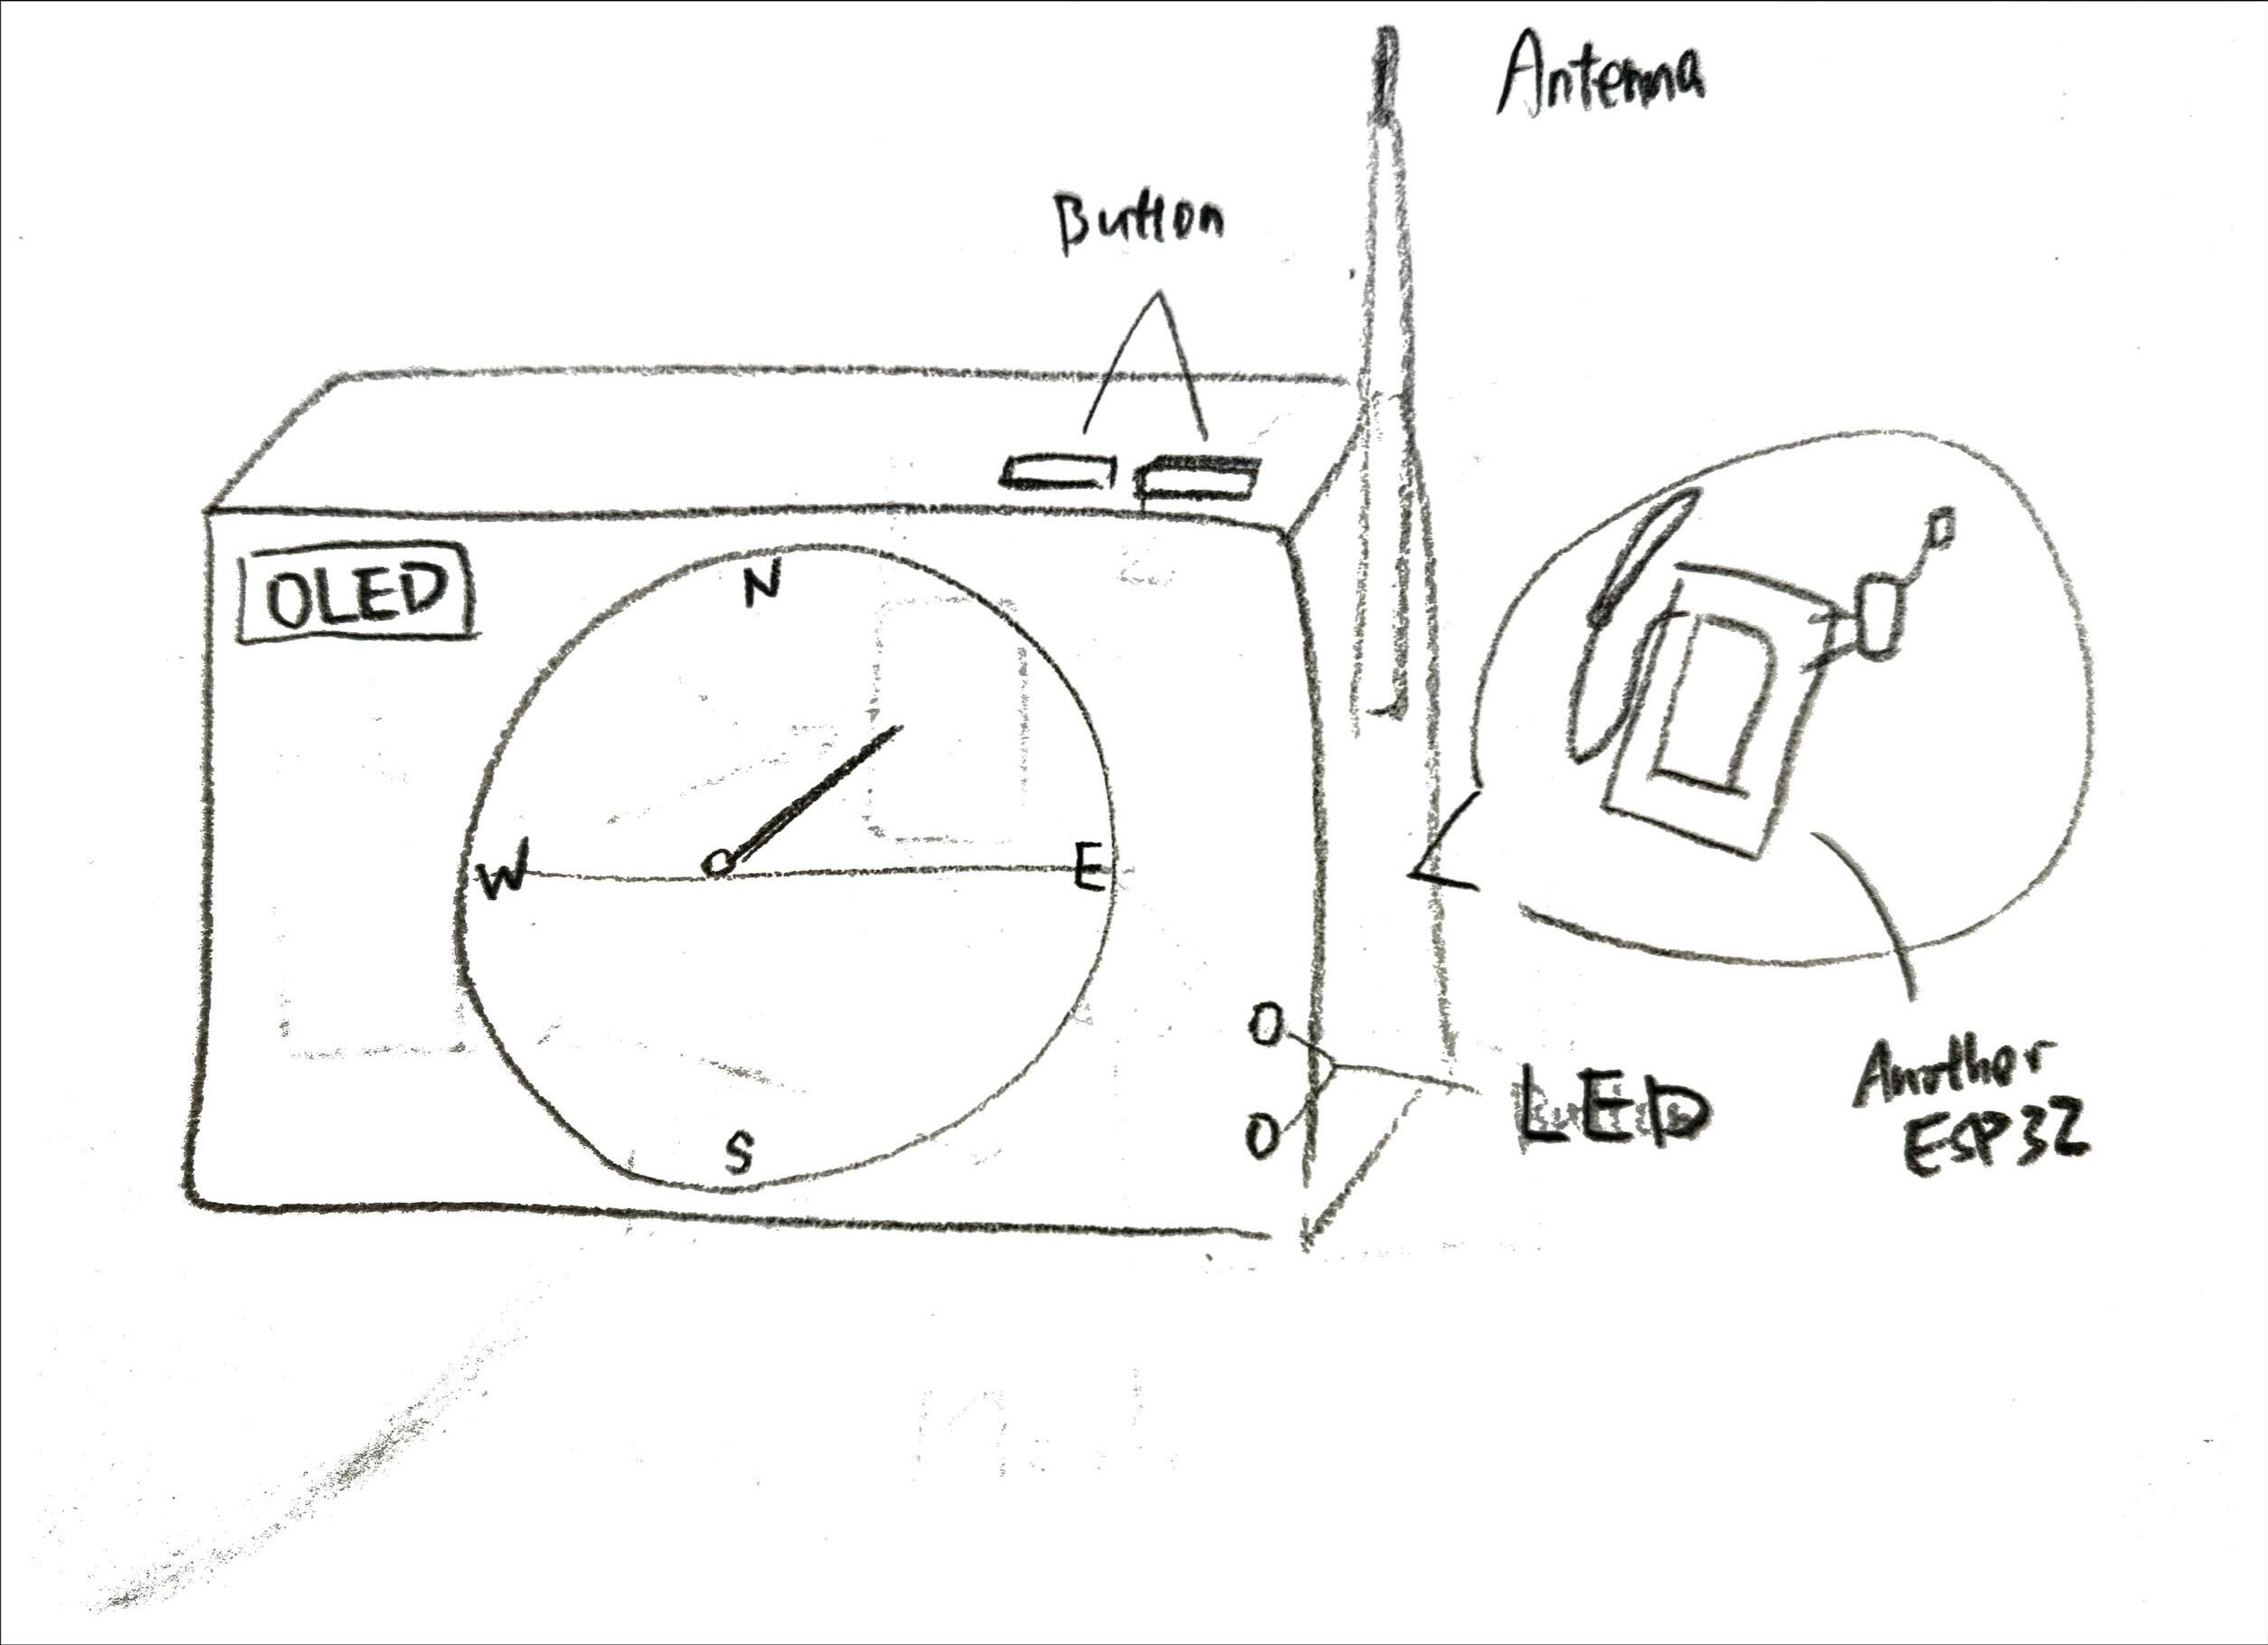 Antenna
Button
OLED
N
W
E
S
LED
Another
ESP32